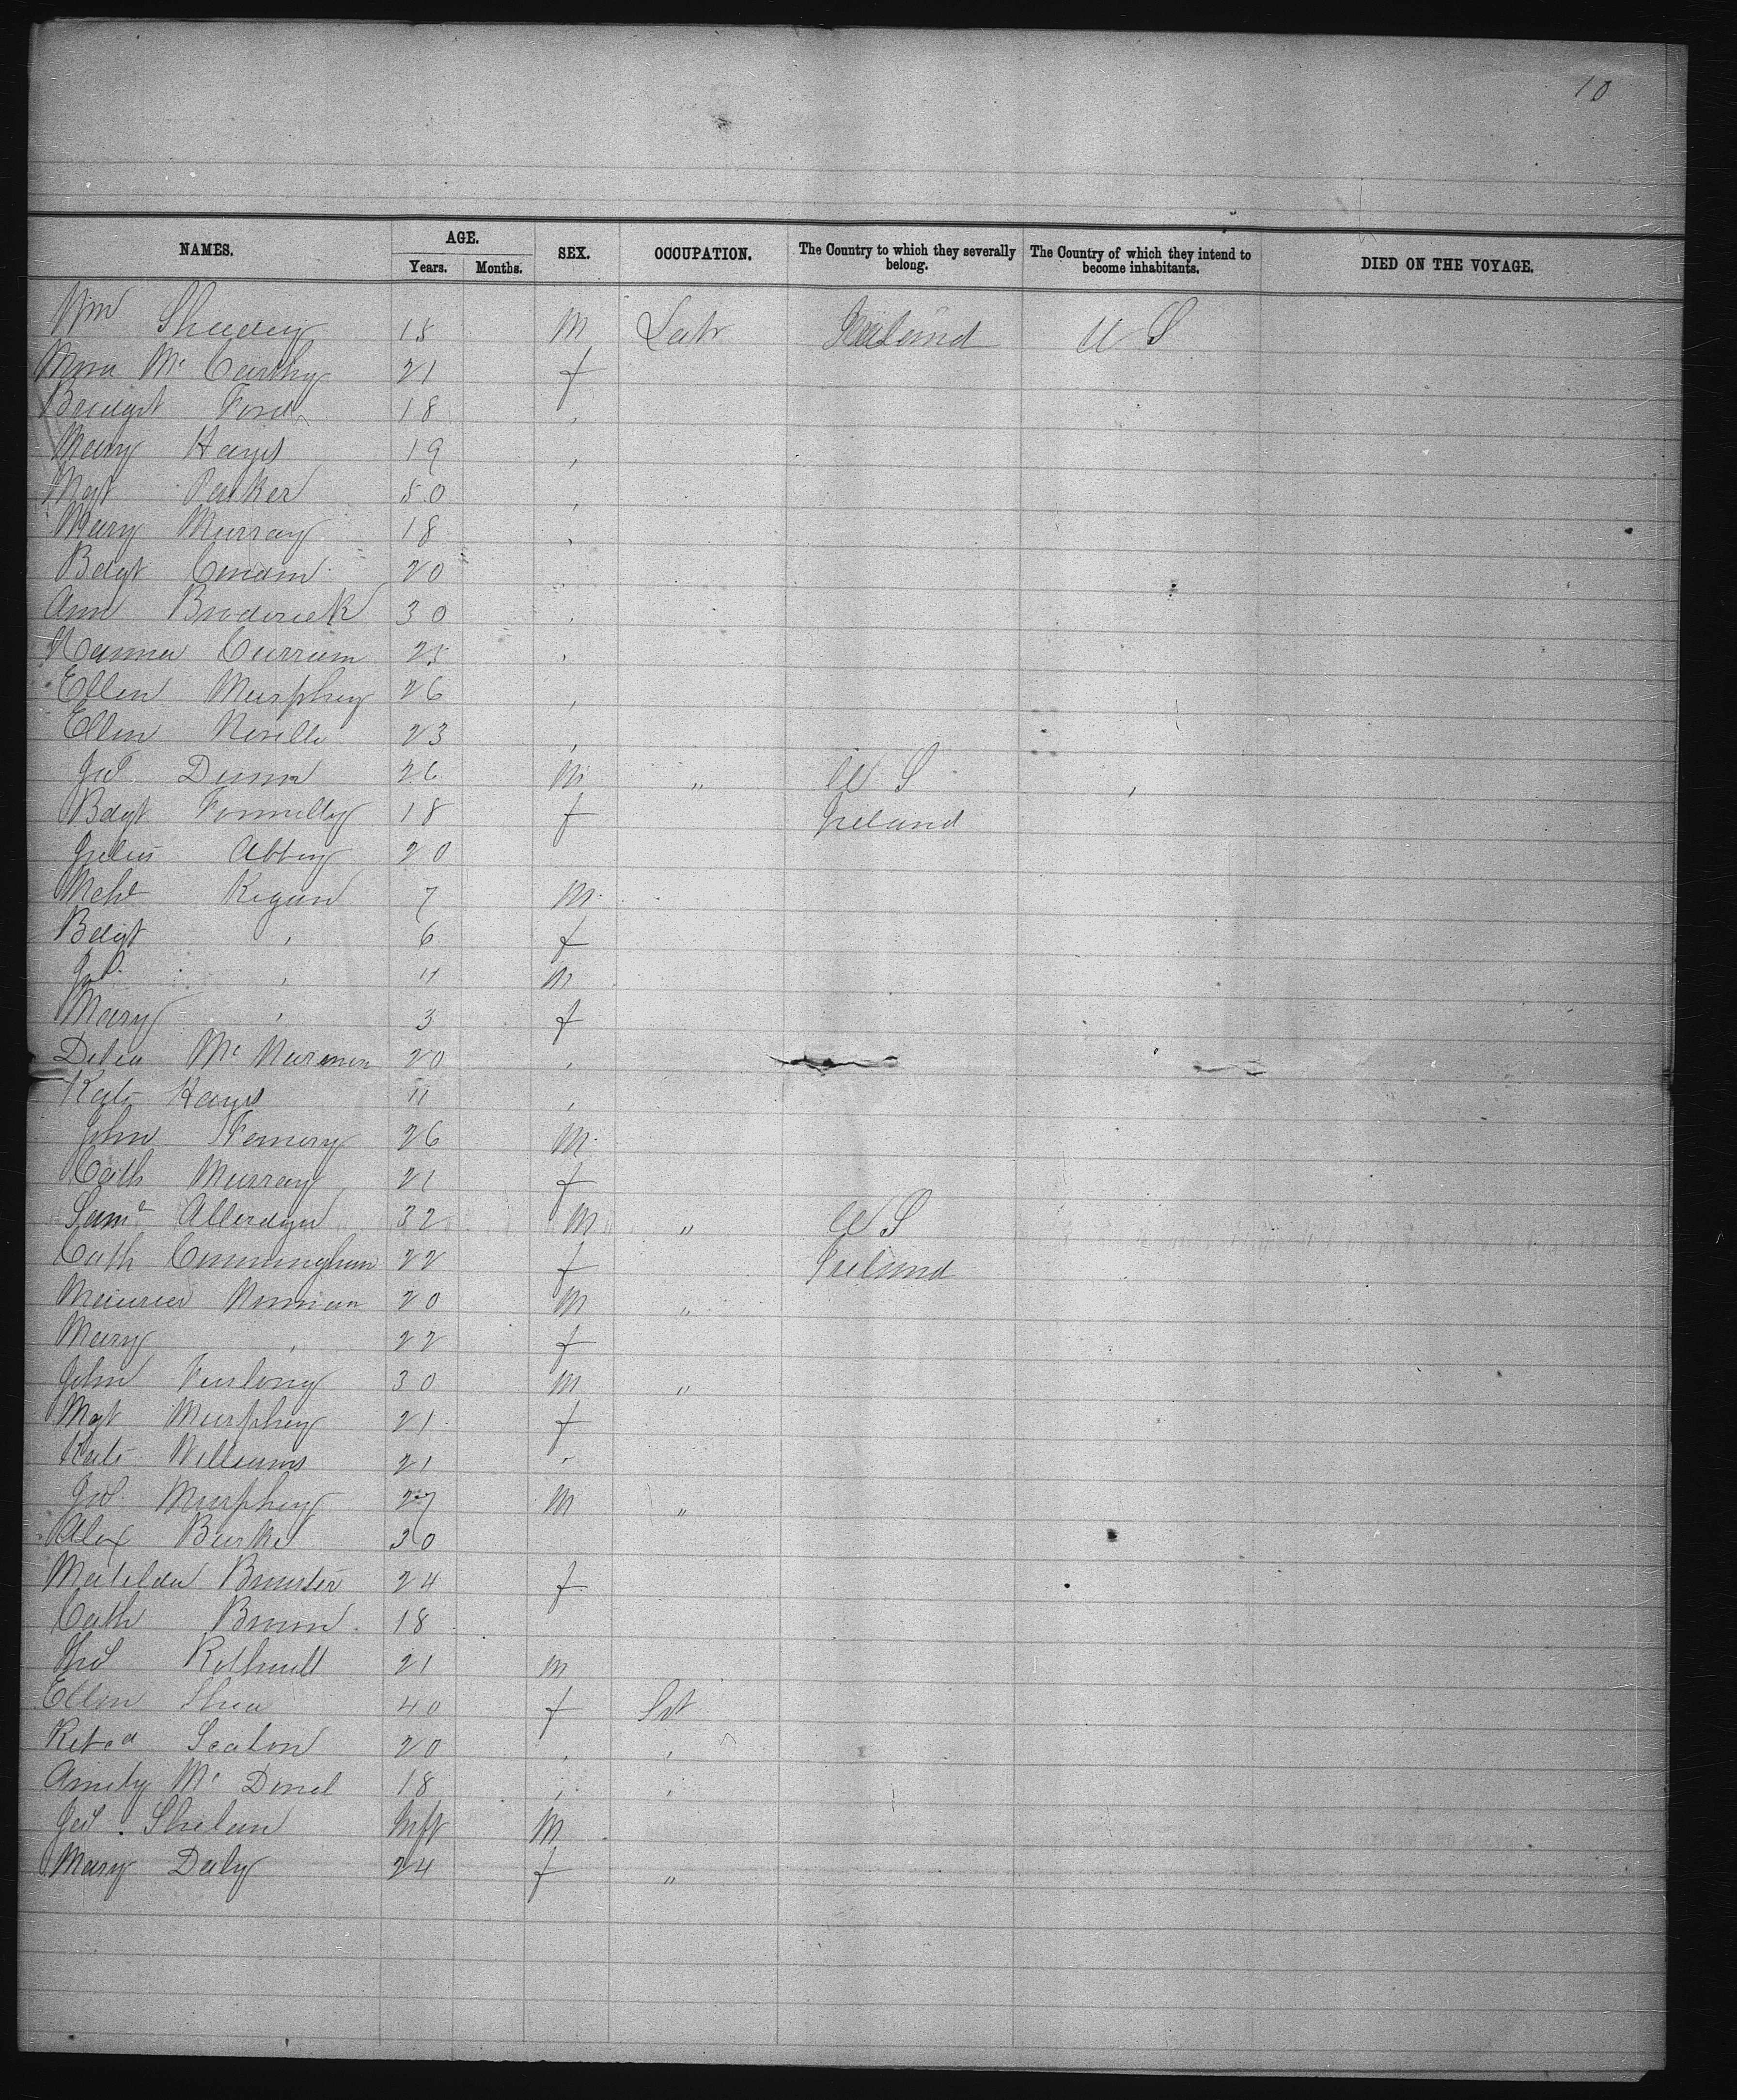 10
NAMES. AGE. SEX. OCCUPATION. The Country to which they severally belong. The Country of which they intend to become inhabitants. DIED ON THE VOYAGE.
Years. Months.
Wm Sheedy 18 M Labr Ireland U S
Nora Mc Carthy 21 f
Bridget Ford 18 ,
Mary Hays 19 ,
Mgt Parker 50 ,
Mary Murray 18 ,
Bdgt 20
Ann Broderick 30 ,
Hanna Curran 25 ,
Ellen Murphy 26 ,
Ellen Neville 23 ,
Jas Dunn 26 M " U S ,
Bdgt 18 f Ireland
Julia Abbey 20
Mchl Regan 7 M
Bdgt , 6 f
Jas , 4 M
Mary , 3 f
Delia Mc 20 ,
Kate Hays 11 ,
John 26 M
Cath Murray 21 f
Saml Allerdyce 32 M " U S
Cath Cunningham 22 f Ireland
Maurice Noonan 20 M "
Mary , 22 f
John Furlong 30 M "
Mgt Murphy 21 f
Kate Williams 21 ,
Jas Murphy 27 M "
Alex Burke 30
Matilda Brewster 24 f
Cath Brown 18
Thos 21 M
Ellen Shea 40 f Svt
Rebca 20 , ,
Mc 18 , ,
Jas. Inft M
Mary Daly 24 f "